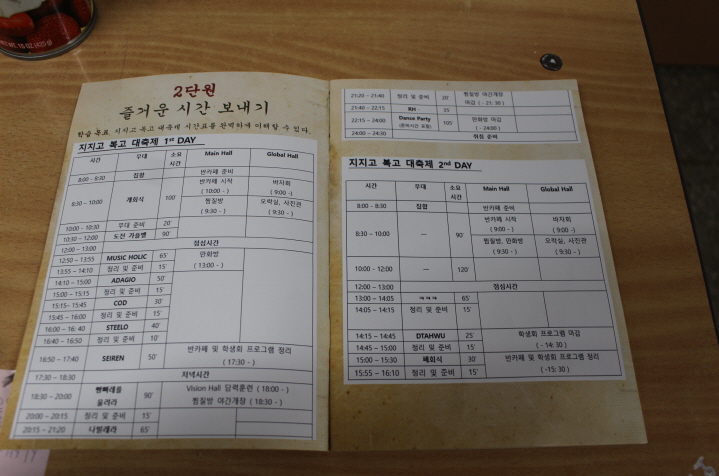 2단원
즐거운 시간 보내기
학습 목표 지지고 복고 대축제 시간표를 완벽하게 이해할 수 있다.
지지고 복고 대축제 1st DAY
시간 무대 소요 시간 Main Hall Global Hall
8:00 – 8:30 집합 반카페 준비
8:30 – 10:00 개회식 100' 반카페 시작 (10:00 - ) 바자회 (9:00 -)
찜질방 (9:30 - ) 오락실, 사진관 (9:30 - )
10:00 – 10:30 무대 준비 20'
10:30 – 12:00 도전 가요벨 90'
12:00 – 13:00 점심시간
12:50 – 13:55 MUSIC HOLIC 65' 만화방 (13:00 - )
13:55 – 14:10 정리 및 준비 15'
14:10 – 15:00 ADAGIO 50'
15:00 – 15:15 정리 및 준비 15'
15:15 – 15:45 COD 30'
15:45 – 16:00 정리 및 준비 15'
16:00 – 16:40 STEELO 40'
16:40 – 16:50 정리 및 준비 10'
16:50 – 17:40 SEIREN 50' 반카페 및 학생회 프로그램 정리 (17:30 - )
17:30 – 18:30 저녁시간
18:30 – 20:00 빰빠레를 울려라 90' Vision Hall 담력훈련 (18:00 - )
찜질방 야간개장 (18:30 - )
20:00 – 20:15 정리 및 준비 15'
20:15 – 21:20 나빌레라 65'
21:20 – 21:40 정리 및 준비 20' 찜질방 야간개장 마감 ( - 21:30 )
21:40 – 22:15 RH - 35'
22:15 – 24:00 Dance Party 105' 만화방 마감 ( - 24:00 )
24:00 – 24:30 취침 준비
지지고 복고 대축제 2nd DAY
시간 무대 소요 시간 Main Hall Global Hall
8:00 – 8:30 집합 반카페 준비
8:30 – 10:00 — 90' 반카페 시작 (9:00 - ) 바자회 (9:00 - )
찜질방, 만화방 (9:30 - ) 오락실, 사진관 (9:30 - )
10:00 – 12:00 — 120'
12:00 – 13:00 점심시간
13:00 – 14:05 ㅋㅋㅋ 65'
14:05 – 14:15 정리 및 준비 15'
14:15 – 14:45 DTAHWU 25' 학생회 프로그램 마감 ( - 14:30 )
14:45 – 15:00 정리 및 준비 15'
15:00 – 15:30 폐회식 30' 반카페 및 학생회 프로그램 정리 ( -15:30 )
15:55 – 16:10 정리 및 준비 15'